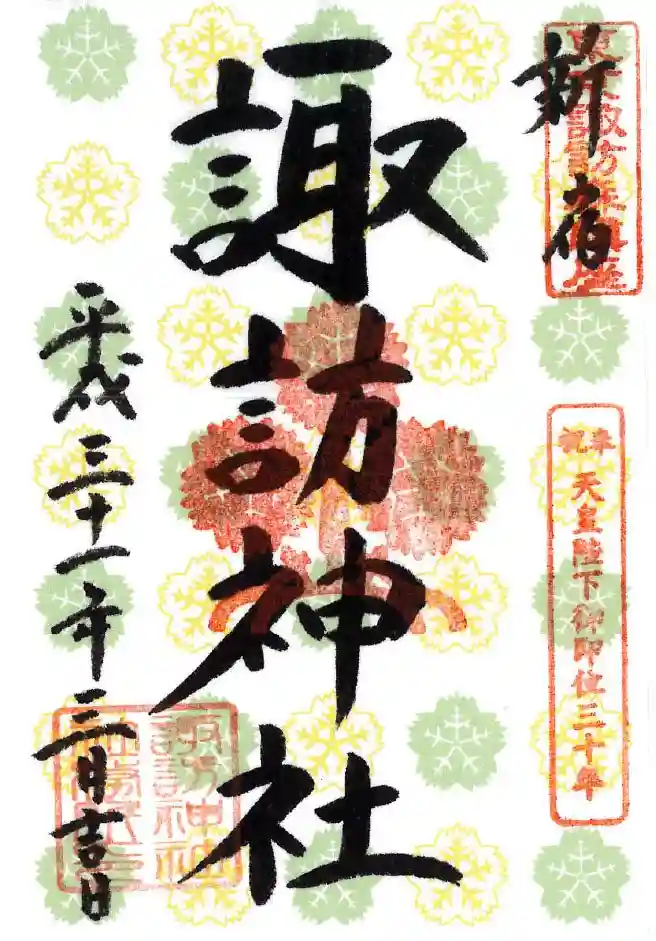 新宿
奉祝 天皇陛下御即位三十年
諏訪神社
平成三十一年三月吉日